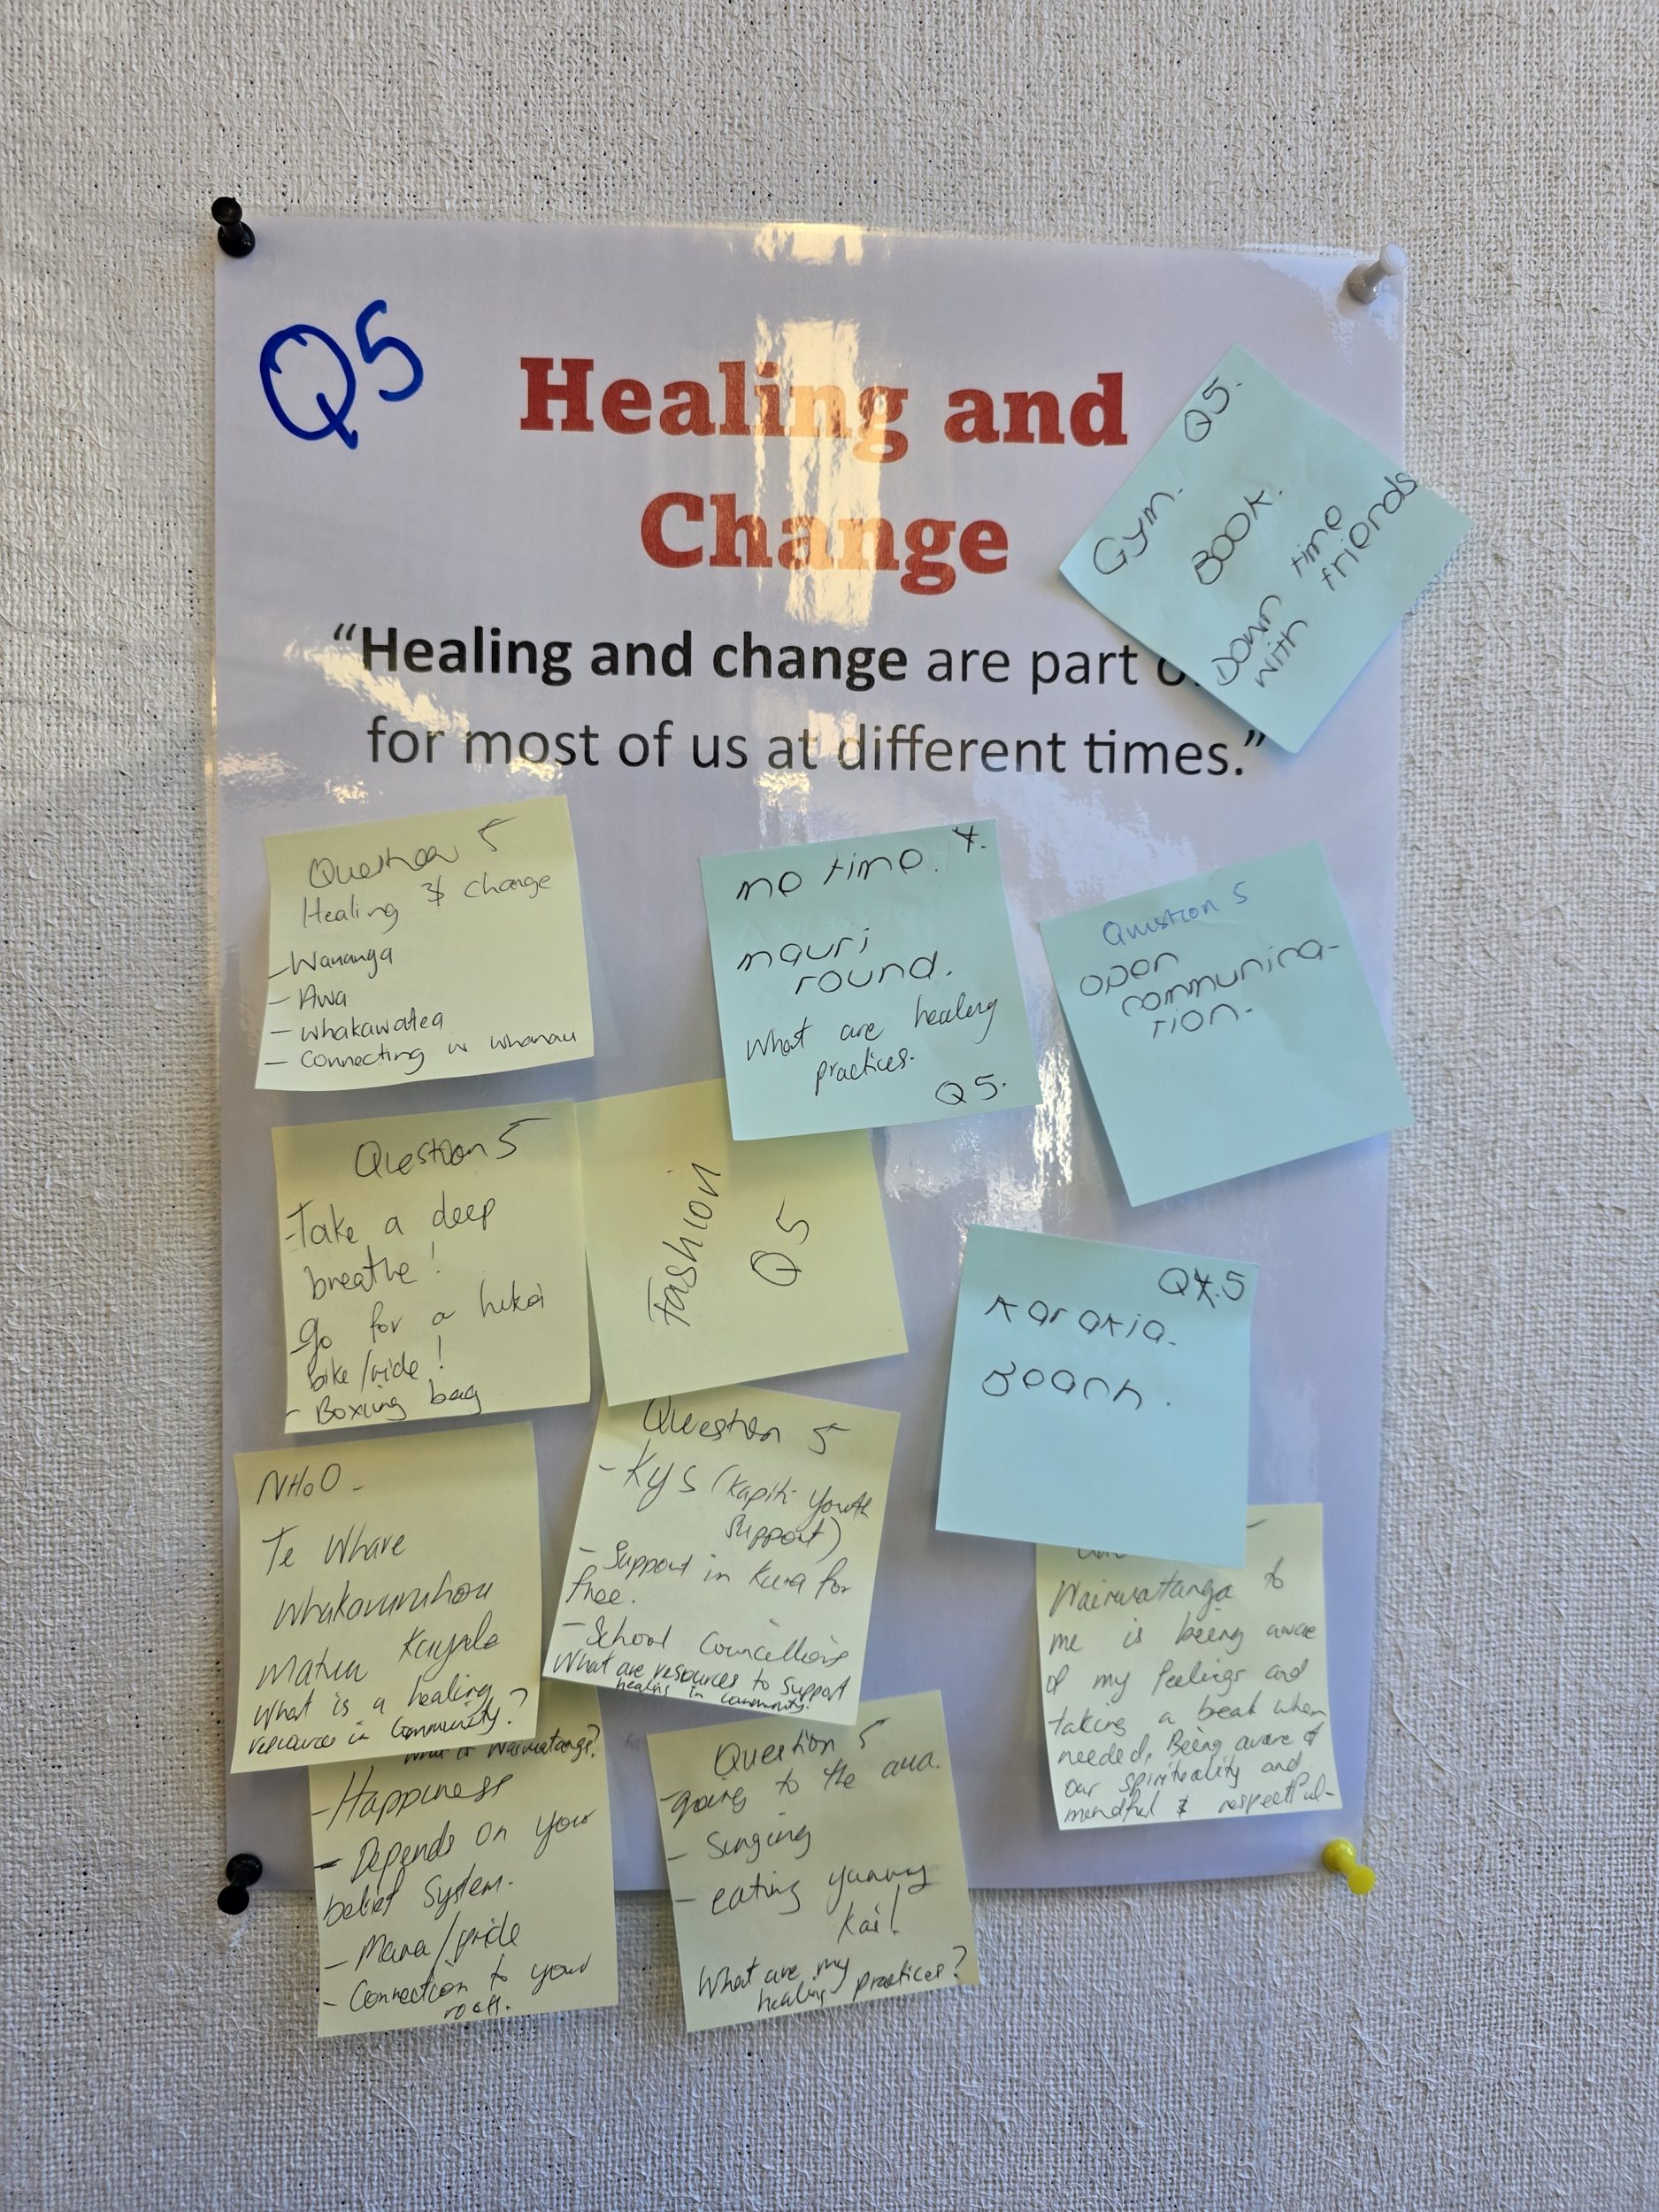 Q5
Healing and
Change
“Healing and change are part
for most of us at different times.”
Q5.
Gym.
BOOK.
Down time
with friends
Question 5
Healing & change
- Wananga
- Awa
- whakawatea
- Connecting w whanau
me time.
mauri
round.
What are healing
practices.
Q5.
Question 5
open
communica-
tion-
Question 5
- Take a deep
breathe!
- go for a hikoi
bike/ride!
- Boxing bag
Fashion
Q5
Q 5
Karakia.
Beach.
NHoO -
Te Whare
Matua
What is a healing
resources in Community?
Question 5
- Kys (Kapiti Youth
Support)
- Support in Kura for
free.
- School Councelliors
What are resources to Support
healing in community.
Wairuatanga to
me is being aware
of my feelings and
taking a break when
needed. Being aware of
our spirituality and
mindful & respectful-
What is Wairuatanga?
- Happiness
- Depends on your
belief System.
- Mana/pride
- Connection to your
roots.
Question 5
- going to the awa.
- Singing
- eating yummy
Kai!
What are my
healing practices?